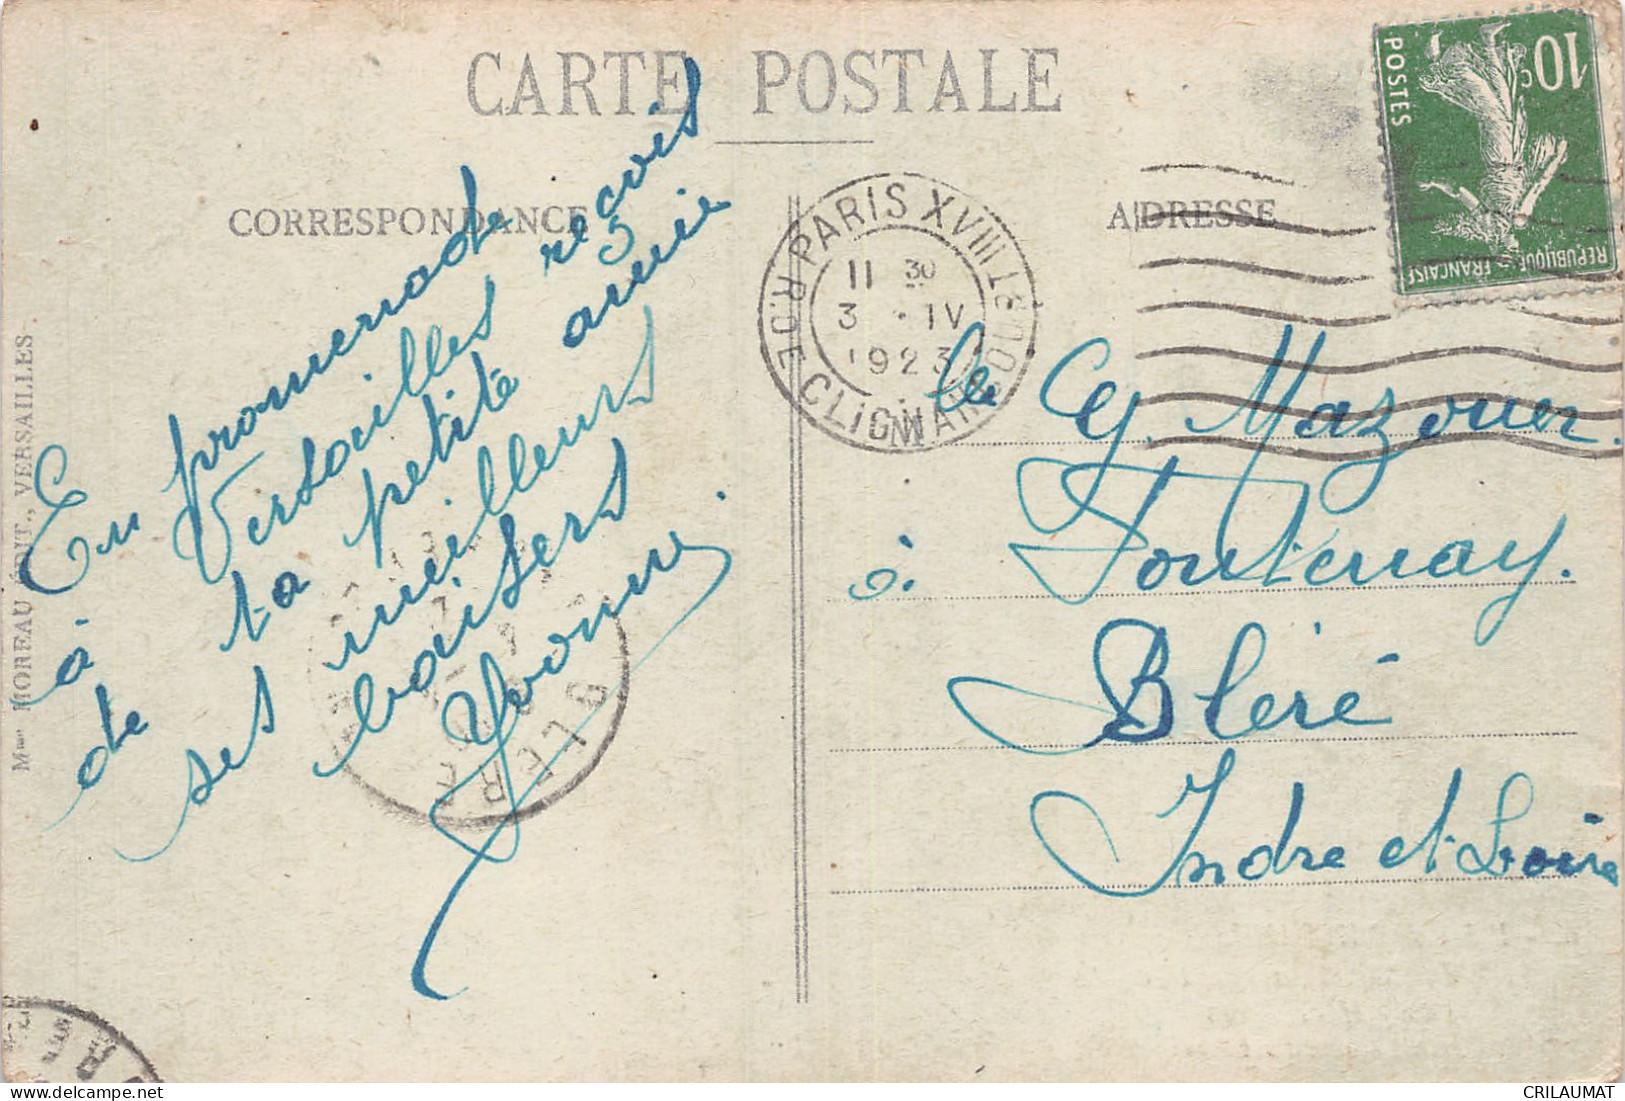 CARTE POSTALE
CORRESPONDANCE
ADRESSE
En promenade
à Versailles reçois
de ta petite amie
ses meilleurs
baisers
Yvonne.
Mme MOREAU ÉDIT., VERSAILLES
PARIS XVIII
R. DE CLIGNANCOURT
11 30
3 · IV
1923
10c
POSTES
REPUBLIQUE FRANÇAISE
Mazouer.
à Fontenay.
Bléré
Indre et Loire
BLERE
CRILAUMAT